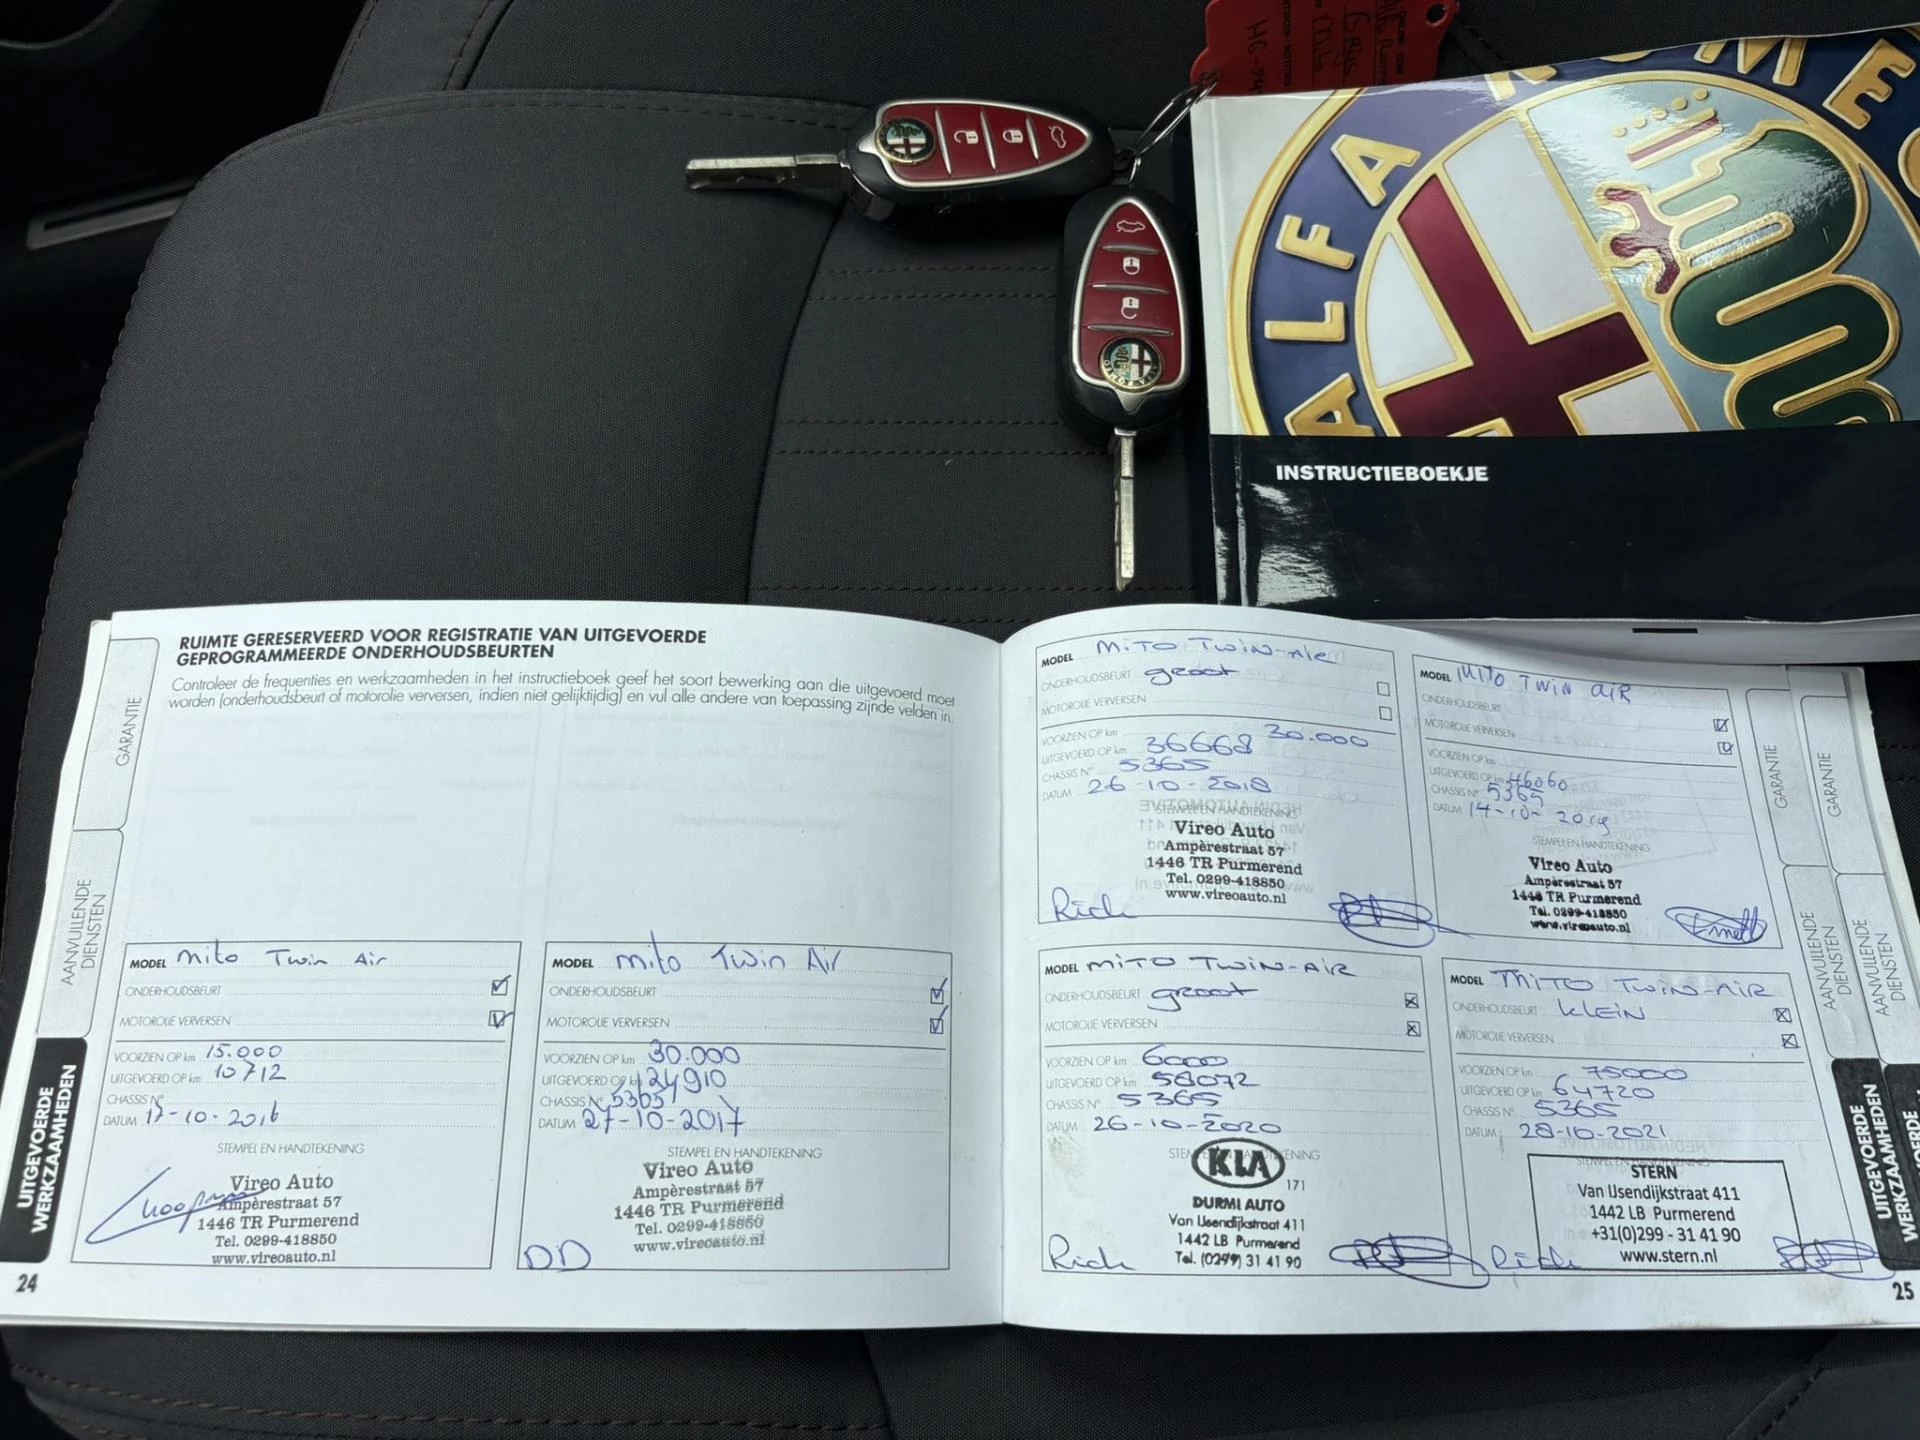 ALFA ROMEO
INSTRUCTIEBOEKJE
GARANTIE
AANVULLENDE
DIENSTEN
UITGEVOERDE
WERKZAAMHEDEN
RUIMTE GERESERVEERD VOOR REGISTRATIE VAN UITGEVOERDE
GEPROGRAMMEERDE ONDERHOUDSBEURTEN
Controleer de frequenties en werkzaamheden in het instructieboek geef het soort bewerking aan die uitgevoerd moet
worden (onderhoudsbeurt of motorolie verversen, indien niet gelijktijdig) en vul alle andere van toepassing zijnde velden in.
MODEL Mito Twin Air
ONDERHOUDSBEURT
MOTOROLIE VERVERSEN
VOORZIEN OP km 15.000
UITGEVOERD OP km 10712
CHASSIS N°
DATUM 17-10-2016
STEMPEL EN HANDTEKENING
Vireo Auto
Ampèrestraat 57
1446 TR Purmerend
Tel. 0299-418850
www.vireoauto.nl
24
MODEL Mito Twin Air
ONDERHOUDSBEURT
MOTOROLIE VERVERSEN
VOORZIEN OP km 30.000
UITGEVOERD OP km 24910
CHASSIS N° 5365
DATUM 27-10-2017
STEMPEL EN HANDTEKENING
Vireo Auto
Ampèrestraat 57
1446 TR Purmerend
Tel. 0299-418850
www.vireoauto.nl
DD
MODEL MiTO TWIN-AIR
ONDERHOUDSBEURT groot
MOTOROLIE VERVERSEN
VOORZIEN OP km 30.000
UITGEVOERD OP km 36668
CHASSIS N° 5365
DATUM 26-10-2018
STEMPEL EN HANDTEKENING
Vireo Auto
Ampèrestraat 57
1446 TR Purmerend
Tel. 0299-418850
www.vireoauto.nl
Rich
MODEL MiTo TWIN aiR
ONDERHOUDSBEURT
MOTOROLIE VERVERSEN
VOORZIEN OP km
UITGEVOERD OP km 46060
CHASSIS N° 5365
DATUM 14-10-2019
STEMPEL EN HANDTEKENING
Vireo Auto
Ampèrestraat 57
1446 TR Purmerend
Tel. 0299-418850
www.vireoauto.nl
MODEL MiTO TWIN-AIR
ONDERHOUDSBEURT groot
MOTOROLIE VERVERSEN
VOORZIEN OP km 6000
UITGEVOERD OP km 58072
CHASSIS N° 5365
DATUM 26-10-2020
STEMPEL EN HANDTEKENING
KIA
171
DURMI AUTO
Van IJsendijkstraat 411
1442 LB Purmerend
Tel. (0299) 31 41 90
Rich
MODEL MITO TWIN-AIR
ONDERHOUDSBEURT KLEIN
MOTOROLIE VERVERSEN
VOORZIEN OP km 75000
UITGEVOERD OP km 64720
CHASSIS N° 5365
DATUM 28-10-2021
STEMPEL EN HANDTEKENING
STERN
Van IJsendijkstraat 411
1442 LB Purmerend
+31(0)299 - 31 41 90
www.stern.nl
Rich
GARANTIE
AANVULLENDE
DIENSTEN
UITGEVOERDE
WERKZAAMHEDEN
25
GARANTIE
AANVULLENDE
DIENSTEN